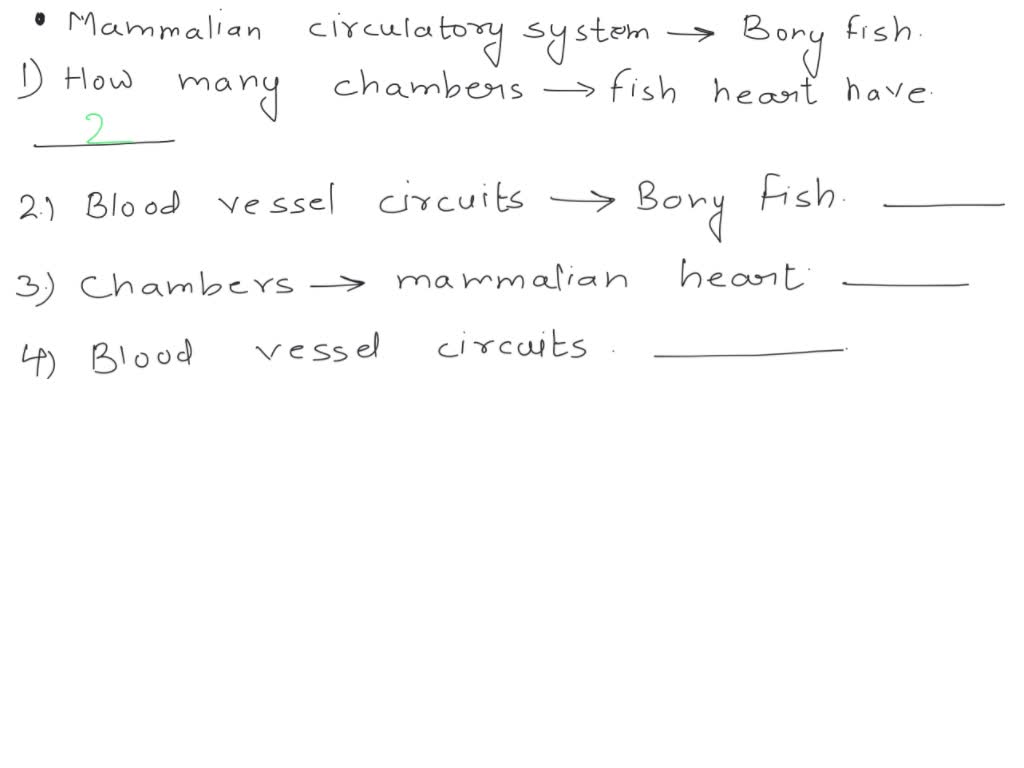 • Mammalian circulatory system → Bony fish.
1) How many chambers → fish heart have.
2
2.) Blood vessel circuits → Bony fish.
3.) Chambers → mammalian heart
4) Blood vessel circuits.